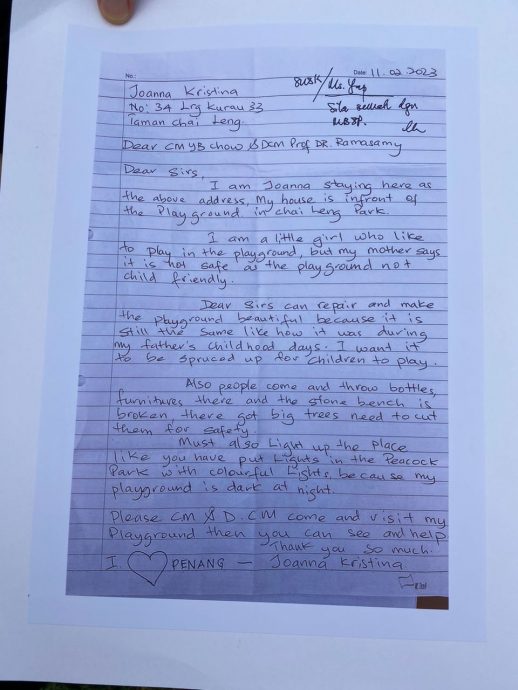 No.:
Date: 11.02.2023
Joanna Kristina
No: 34 Lrg Kurau 33
Taman chai Leng.
SUSK/Ms. Yap
Sila semak dgn
MBSP.
Dear CM YB Chow & DCM Prof DR. Ramasamy
Dear Sirs,
I am Joanna staying here as
the above address, My house is infront of
the Playground in chai Leng Park.
I am a little girl who like
to play in the playground, but my mother says
it is not safe as the playground not
child friendly.
Dear Sirs can repair and make
the playground beautiful because it is
still the same like how it was during
my father's childhood days. I want it
to be spruced up for children to play.
Also people come and throw bottles,
furnitures there and the stone bench is
broken there got big trees need to cut
them for safety.
Must also Light up the place
like you have put Lights in the Peacock
Park with colourful Lights, because my
playground is dark at night.
Please CM & D.CM come and visit my
Playground then you can see and help
Thank you so much.
I ♡ PENANG — Joanna Kristina